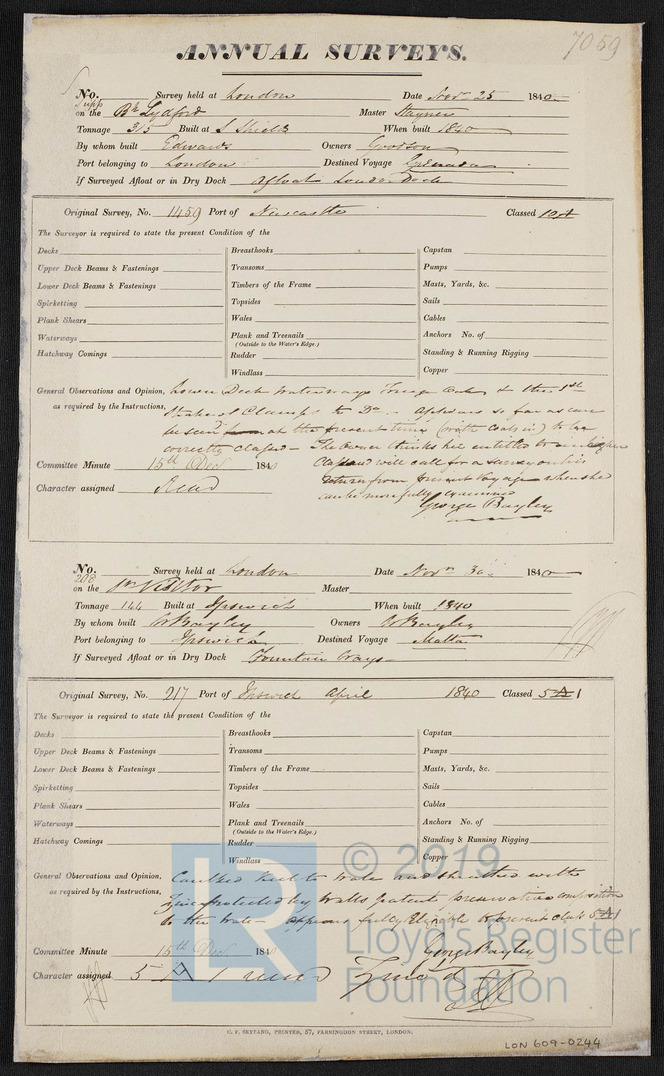 7059
ANNUAL SURVEYS.
No. Survey held at London Date Novr 25 1840
Supp
on the Bk Lydford Master Stayner
Tonnage 315 Built at S Shields When built 1840
By whom built Edwards Owners Goodson
Port belonging to London Destined Voyage Grenada
If Surveyed Afloat or in Dry Dock Afloat London Dock
Original Survey, No. 1459 Port of Newcastle Classed 10A
The Surveyor is required to state the present Condition of the
Decks Breasthooks Capstan
Upper Deck Beams & Fastenings Transoms Pumps
Lower Deck Beams & Fastenings Timbers of the Frame Masts, Yards, &c.
Spirketting Topsides Sails
Plank Shears Wales Cables
Waterways Plank and Treenails Anchors No. of
(Outside to the Water's Edge.)
Hatchway Comings Rudder Standing & Running Rigging
Windlass Copper
General Observations and Opinion, Lower Deck Waterways Foreign Oak & the 1st
as required by the Instructions, Strake of Clamps to Do. Appears so far as can
be seen at the present time (with coals in) to be
correctly classed - The Owner thinks her entitled to a higher
Class and will call for a survey on his
return from present Voyage when she
can be more fully examined
George Bayley
Committee Minute 15th Decr 1840
Character assigned Read
No. Survey held at London Date Novr 30 1840
208
on the Victor Master
Tonnage 144 Built at Ipswich When built 1840
By whom built W Bayley Owners W Bayley
Port belonging to Ipswich Destined Voyage Malta
If Surveyed Afloat or in Dry Dock Fountain Ways
Original Survey, No. 217 Port of Ipswich April 1840 Classed 5 A 1
The Surveyor is required to state the present Condition of the
Decks Breasthooks Capstan
Upper Deck Beams & Fastenings Transoms Pumps
Lower Deck Beams & Fastenings Timbers of the Frame Masts, Yards, &c.
Spirketting Topsides Sails
Plank Shears Wales Cables
Waterways Plank and Treenails Anchors No. of
(Outside to the Water's Edge.)
Hatchway Comings Rudder Standing & Running Rigging
Windlass Copper
General Observations and Opinion, Caulked keel to Wale and sheathed with
as required by the Instructions, Zinc protected by Walls patent preservative composition
to the Wales appears fully Eligible to present class 5 A 1
George Bayley
Committee Minute 15th Decr 1840
Character assigned 5 A 1 read Zinced
C. F. SEYFANG, PRINTER, 57, FARRINGDON STREET, LONDON.
LON 609-0244
LR
© 2019
Lloyd's Register
Foundation